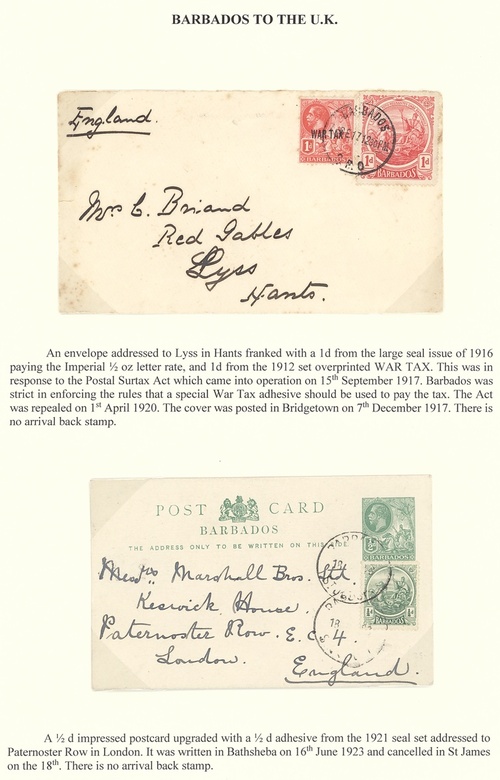 BARBADOS TO THE U.K.
England.
WAR TAX
1d 1d
BARBADOS
BARBADOS
BARBADOS
Mrs C. Briand
Red Gables
Lyss
Hants.
An envelope addressed to Lyss in Hants franked with a 1d from the large seal issue of 1916
paying the Imperial ½ oz letter rate, and 1d from the 1912 set overprinted WAR TAX. This was in
response to the Postal Surtax Act which came into operation on 15th September 1917. Barbados was
strict in enforcing the rules that a special War Tax adhesive should be used to pay the tax. The Act
was repealed on 1st April 1920. The cover was posted in Bridgetown on 7th December 1917. There is
no arrival back stamp.
POST CARD
BARBADOS
THE ADDRESS ONLY TO BE WRITTEN ON THIS
Messrs Marshall Bros. Ltd
Keswick House.
Paternoster Row. E.C. 4.
London.
England.
BARBADOS
18
A ½ d impressed postcard upgraded with a ½ d adhesive from the 1921 seal set addressed to
Paternoster Row in London. It was written in Bathsheba on 16th June 1923 and cancelled in St James
on the 18th. There is no arrival back stamp.